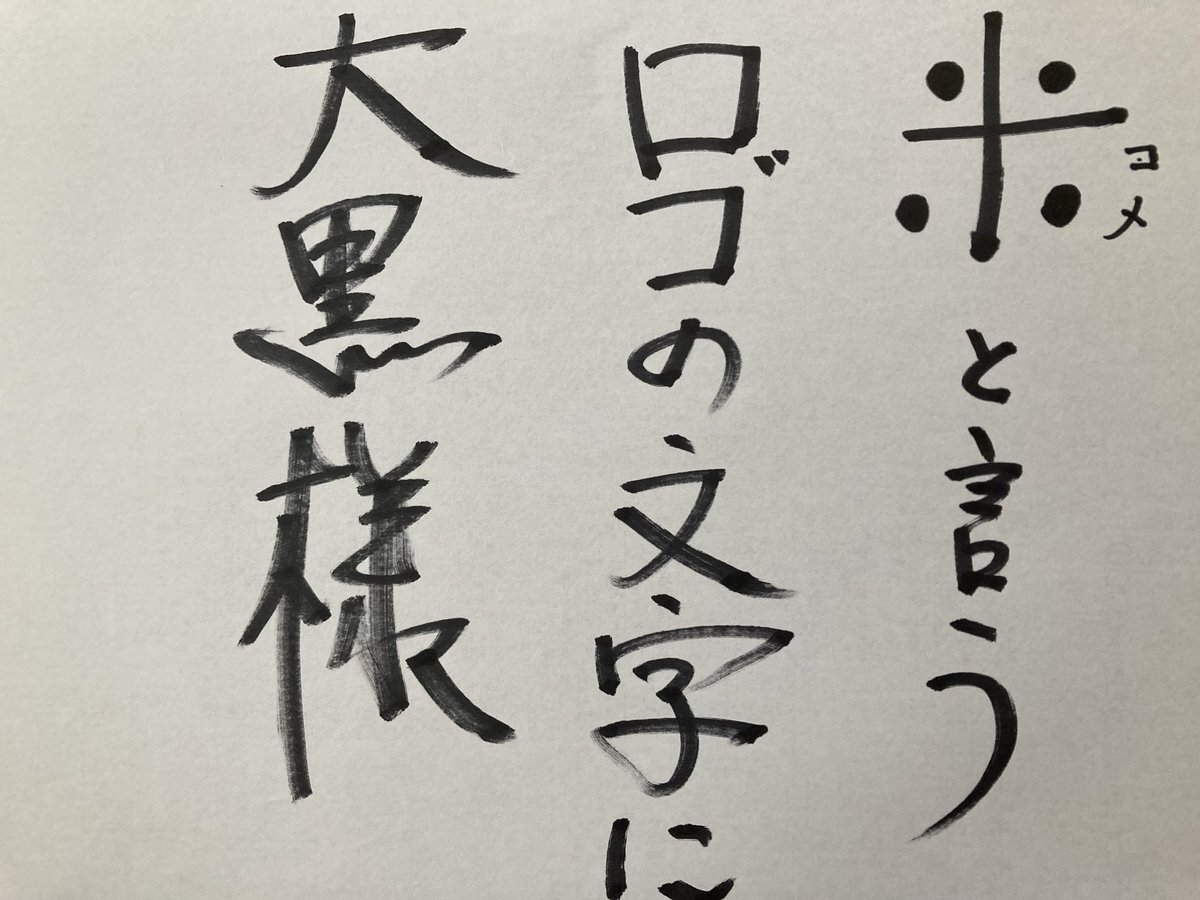 米と言う
コメ
ロゴの文字に
大黒様